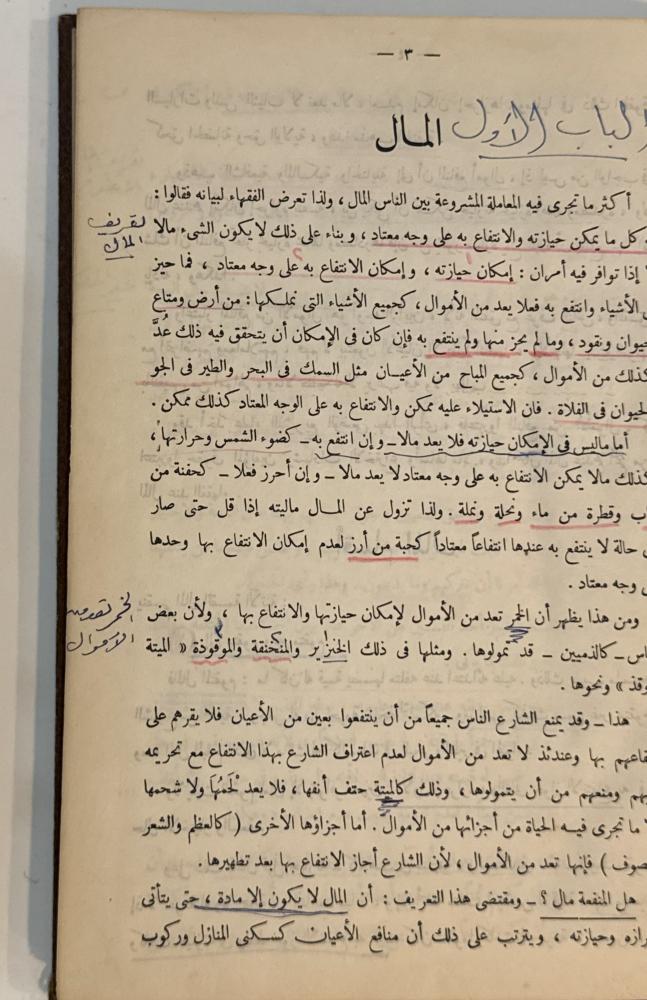 — ٣ —
الباب الأول المال
أكثر ما تجرى فيه المعاملة المشروعة بين الناس المال ، ولذا تعرض الفقهاء لبيانه فقالوا :
كل ما يمكن حيازته والانتفاع به على وجه معتاد ، وبناء على ذلك لا يكون الشىء مالا
تعريف
المال
إذا توافر فيه أمران : إمكان حيازته ، وإمكان الانتفاع به على وجه معتاد ، فما حيز
الأشياء وانتفع به فعلا يعد من الأموال ، كجميع الأشياء التى نملكها : من أرض ومتاع
حيوان ونقود ، وما لم يحز منها ولم ينتفع به فإن كان فى الإمكان أن يتحقق فيه ذلك عُدَّ
كذلك من الأموال ، كجميع المباح من الأعيان مثل السمك فى البحر والطير فى الجو
الحيوان فى الفلاة . فان الاستيلاء عليه ممكن والانتفاع به على الوجه المعتاد كذلك ممكن .
أما ماليس فى الإمكان حيازته فلا يعد مالا ــ وإن انتفع به ــ كضوء الشمس وحرارتها ،
كذلك مالا يمكن الانتفاع به على وجه معتاد لا يعد مالا ــ وإن أحرز فعلا ــ كحفنة من
وقطرة من ماء ونحلة ونملة . ولذا تزول عن المال ماليته إذا قل حتى صار
حالة لا ينتفع به عندها انتفاعاً معتاداً كحبة من أرز لعدم إمكان الانتفاع بها وحدها
وجه معتاد .
ومن هذا يظهر أن الخمر تعد من الأموال لإمكان حيازتها والانتفاع بها ، ولأن بعض
الخمر تعد من
الأموال
ــ كالذميين ــ قد تمولوها . ومثلها فى ذلك الخنزير والمنخنقة والموقوذة « الميتة
» ونحوها .
هذا ــ وقد يمنع الشارع الناس جميعاً من أن ينتفعوا بعين من الأعيان فلا يقرهم على
بها وعندئذ لا تعد من الأموال لعدم اعتراف الشارع بهذا الانتفاع مع تحريمه
ومنعهم من أن يتمولوها ، وذلك كالميتة حتف أنفها ، فلا يعد لَحْمُهَا ولا شحمها
ما تجرى فيه الحياة من أجزائها من الأموال . أما أجزاؤها الأخرى ( كالعظم والشعر
) فإنها تعد من الأموال ، لأن الشارع أجاز الانتفاع بها بعد تطهيرها .
هل المنفعة مال ؟ ــ ومقتضى هذا التعريف : أن المال لا يكون إلا مادة ، حتى يتأتى
وحيازته ، ويترتب على ذلك أن منافع الأعيان كسكنى المنازل وركوب